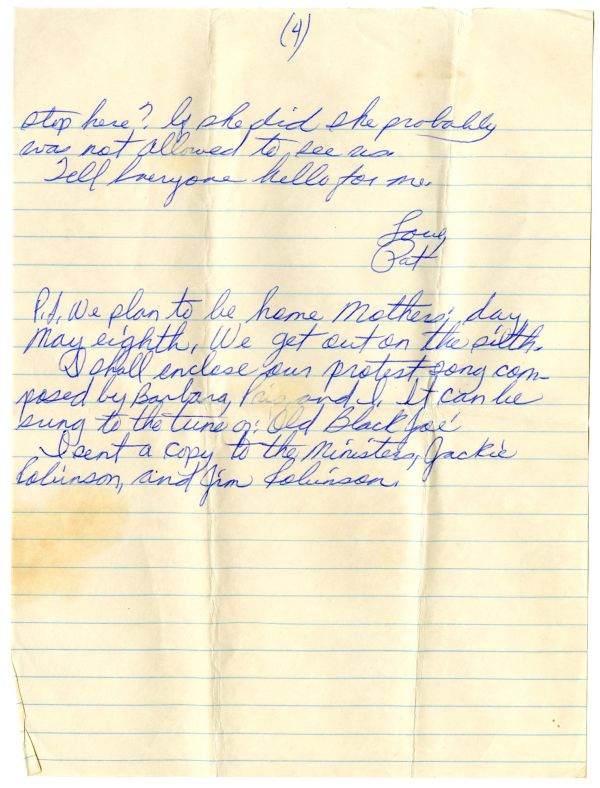 (4)
stop here? If she did she probably
was not allowed to see us.
Tell Everyone hello for me.
Love,
Pat
P.S. We plan to be home Mothers' day,
May eighth. We get out on the fifth.
I shall enclose our protest song com-
posed by Barbara, Pris and I. It can be
sung to the tune of: 'Old Black Joe'
I sent a copy to the Ministers, Jackie
Robinson, and Jim Robinson.